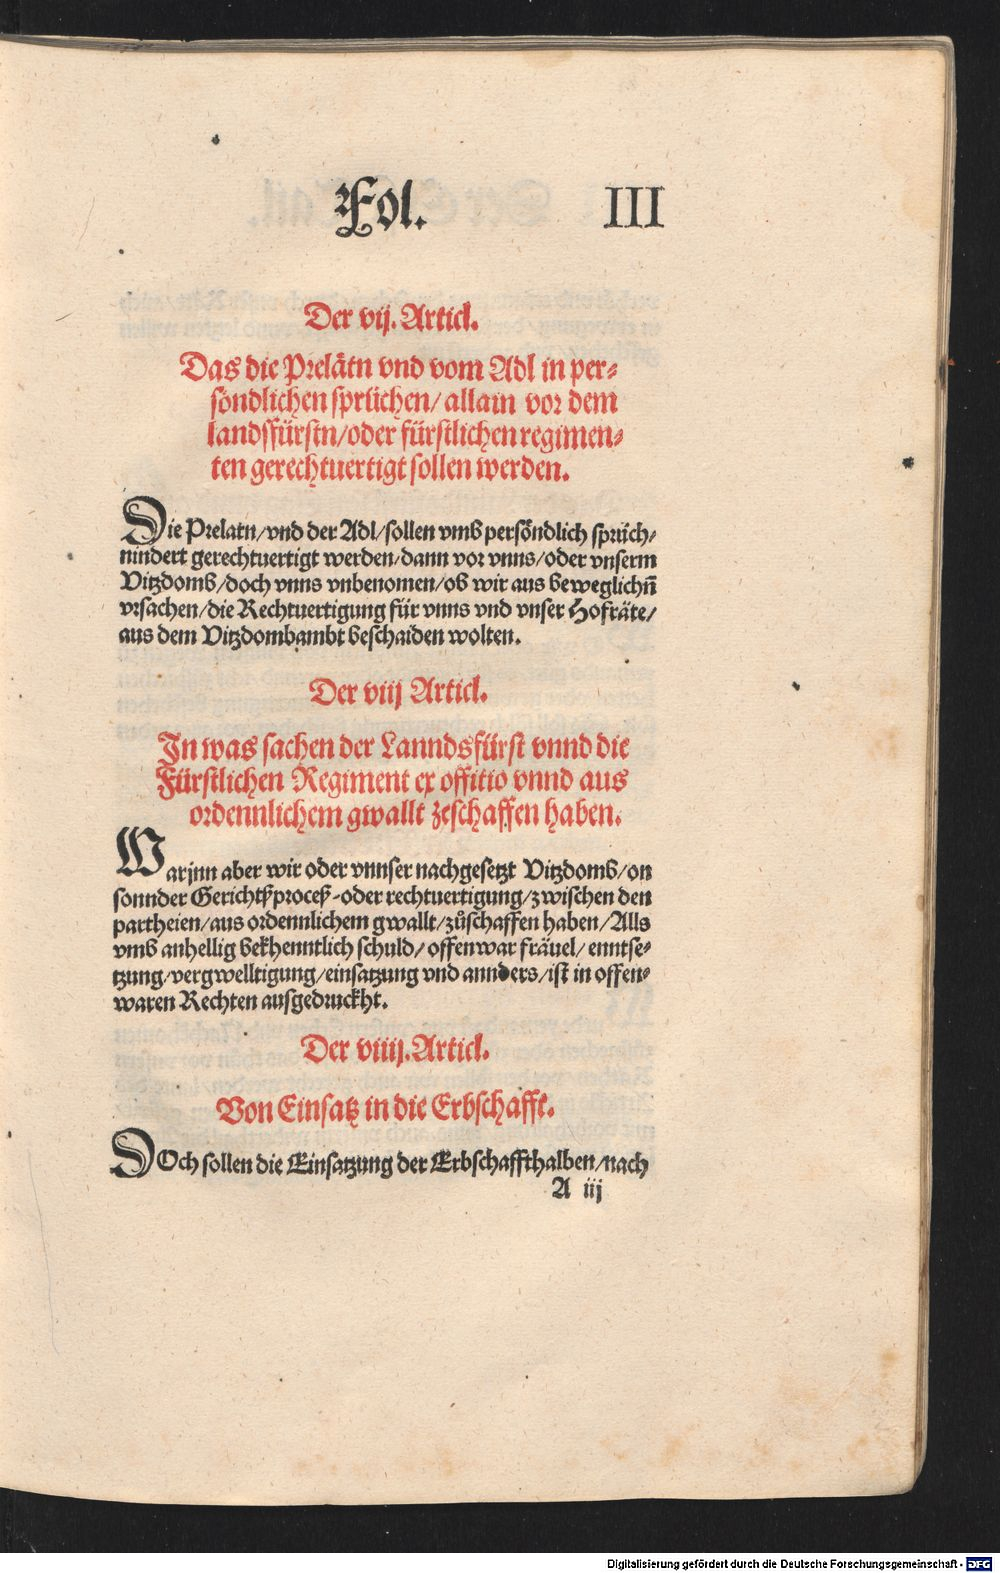 Fol. III
Der vij. Articl.
Das die Prelätn vnd vom Adl in per⸗
söndlichen sprüchen/ allain vor dem
landsfürstn/oder fürstlichen regimen⸗
ten gerechtuertigt sollen werden.
Die Prelatn/vnd der Adl/sollen vmb persöndlich sprüch⸗
nindert gerechtuertigt werden/dann vor vnns/oder vnserm
Vitzdomb/doch vnns vnbenomen/ob wir aus beweglichn̄
vrsachen/die Rechtuertigung für vnns vnd vnser Hofräte/
aus dem Vitzdombambt beschaiden wolten.
Der viij Articl.
In was sachen der Lanndsfürst vnnd die
Fürstlichen Regiment ex offitio vnnd aus
ordennlichem gwallt zeschaffen haben.
Warjnn aber wir oder vnnser nachgesetzt Vitzdomb/on
sonnder Gerichtßproceß⸗oder rechtuertigung/zwischen den
partheien/aus ordennlichem gwallt/zůschaffen haben/Alls
vmb anhellig bekhenntlich schuld/ offenwar fräuel/ enntse⸗
tzung/vergwelltigung/einsatzung vnd annders/ist in offen⸗
waren Rechten ausgedruckht.
Der viiij. Articl.
Von Einsatz in die Erbschafft.
DOch sollen die Einsatzung der Erbschaffthalben/nach
A iij
Digitalisierung gefördert durch die Deutsche Forschungsgemeinschaft - DFG